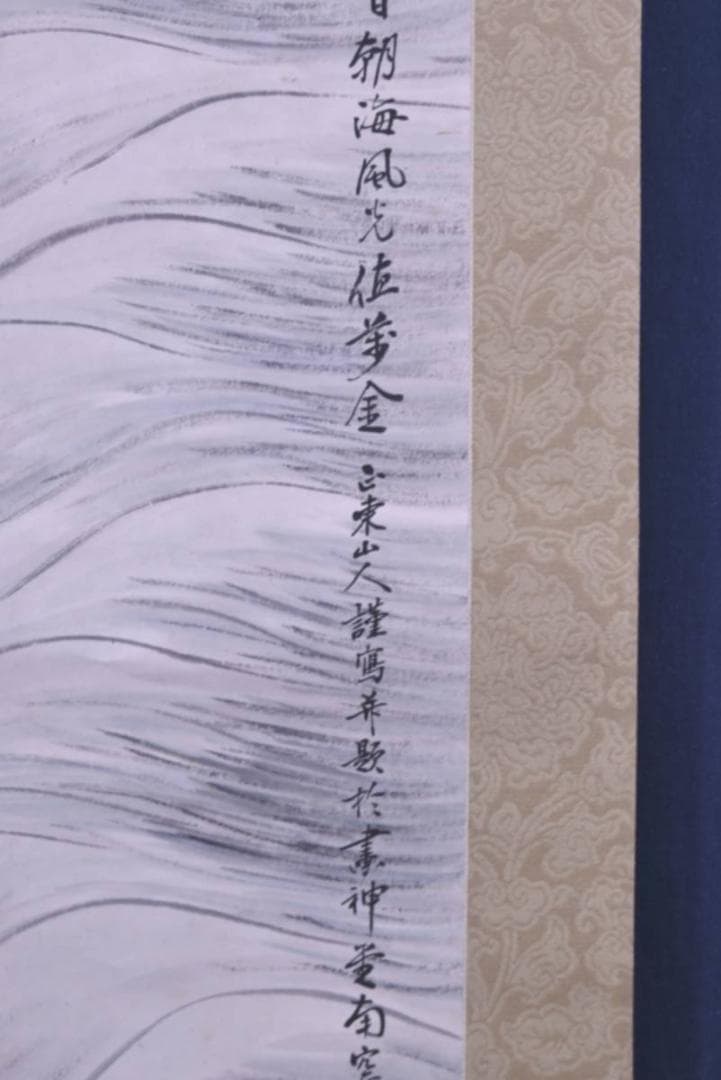 朝海風光值萬金 正東山人謹寫并題於畫神堂南窓